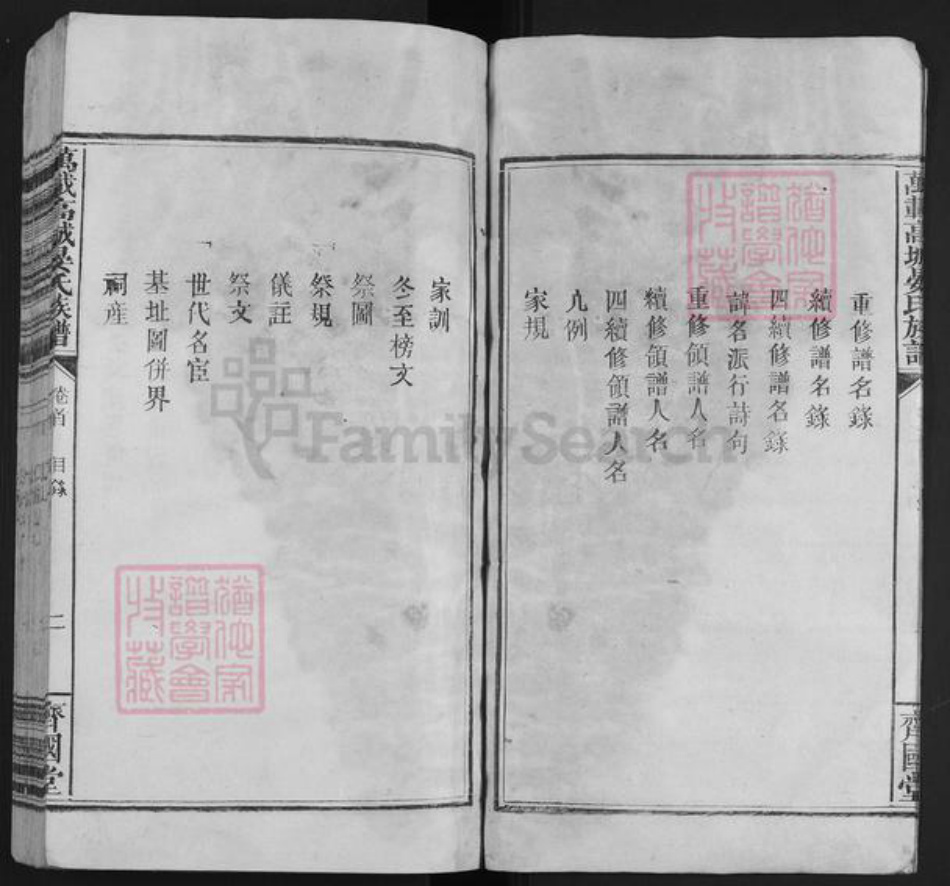 重修譜名錄
續修譜名錄
四續修譜名錄
諱名派行詩句
重修領譜人名
續修領譜人名
四續修領譜人名
凡例
家規
家訓
冬至榜文
祭圖
祭規
儀註
祭文
世代名宦
基址圖併界
祠產
萬載高城晏氏族譜
卷首
目錄
二
齊國堂
萬載高城晏氏族譜
齊國堂
猶他家
譜學會
收藏
猶他家
譜學會
收藏
FamilySearch